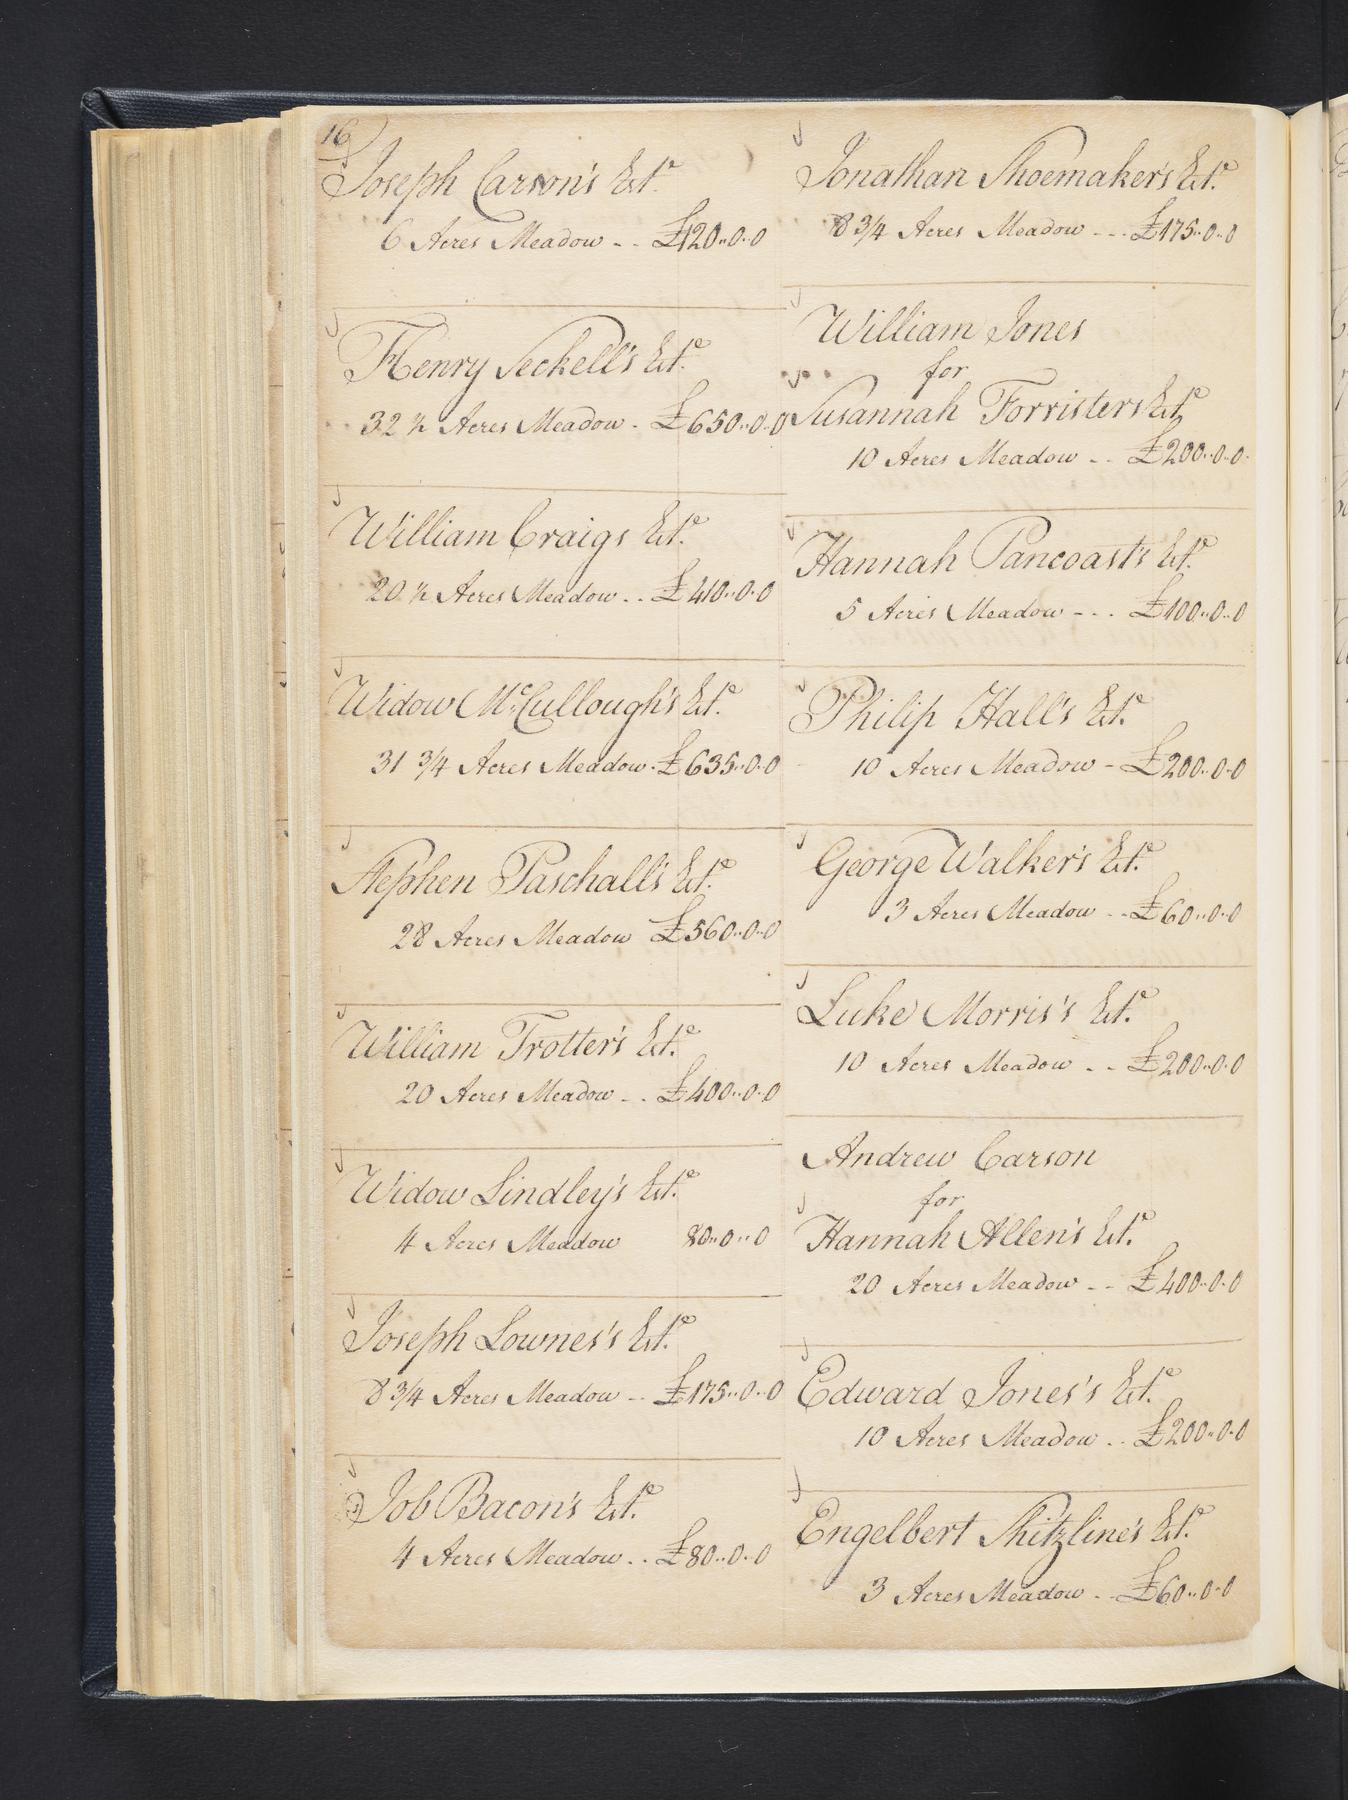 16
Joseph Carson's Est.e
6 Acres Meadow - - £120..0..0
Henry Seckell's Est.e
32 ½ Acres Meadow - £650..0..0
William Craigs Est.e
20 ½ Acres Meadow - - £410..0..0
Widow Mc.Cullough's Est.e
31 3/4 Acres Meadow - £635..0..0
Stephen Paschall's Est.e
28 Acres Meadow £560..0..0
William Trotter's Est.e
20 Acres Meadow - - £400..0..0
Widow Lindley's Est.e
4 Acres Meadow 80..0..0
Joseph Lownes's Est.e
8 3/4 Acres Meadow - - £175..0..0
Job Bacon's Est.e
4 Acres Meadow - - £80..0..0
Jonathan Shoemaker's Est.e
8 3/4 Acres Meadow - - - £175..0..0
William Jones
for
Susannah Forristers Est.e
10 Acres Meadow - - £200..0..0
Hannah Pancoast's Est.e
5 Acres Meadow - - - £100..0..0
Philip Hall's Est.e
10 Acres Meadow - £200..0..0
George Walker's Est.e
3 Acres Meadow - - £60..0..0
Luke Morris's Est.e
10 Acres Meadow - - £200..0..0
Andrew Carson
for
Hannah Allen's Est.e
20 Acres Meadow - - £400..0..0
Edward Jones's Est.e
10 Acres Meadow - - £200..0..0
Engelbert Shitzline's Est.e
3 Acres Meadow - - £60..0..0